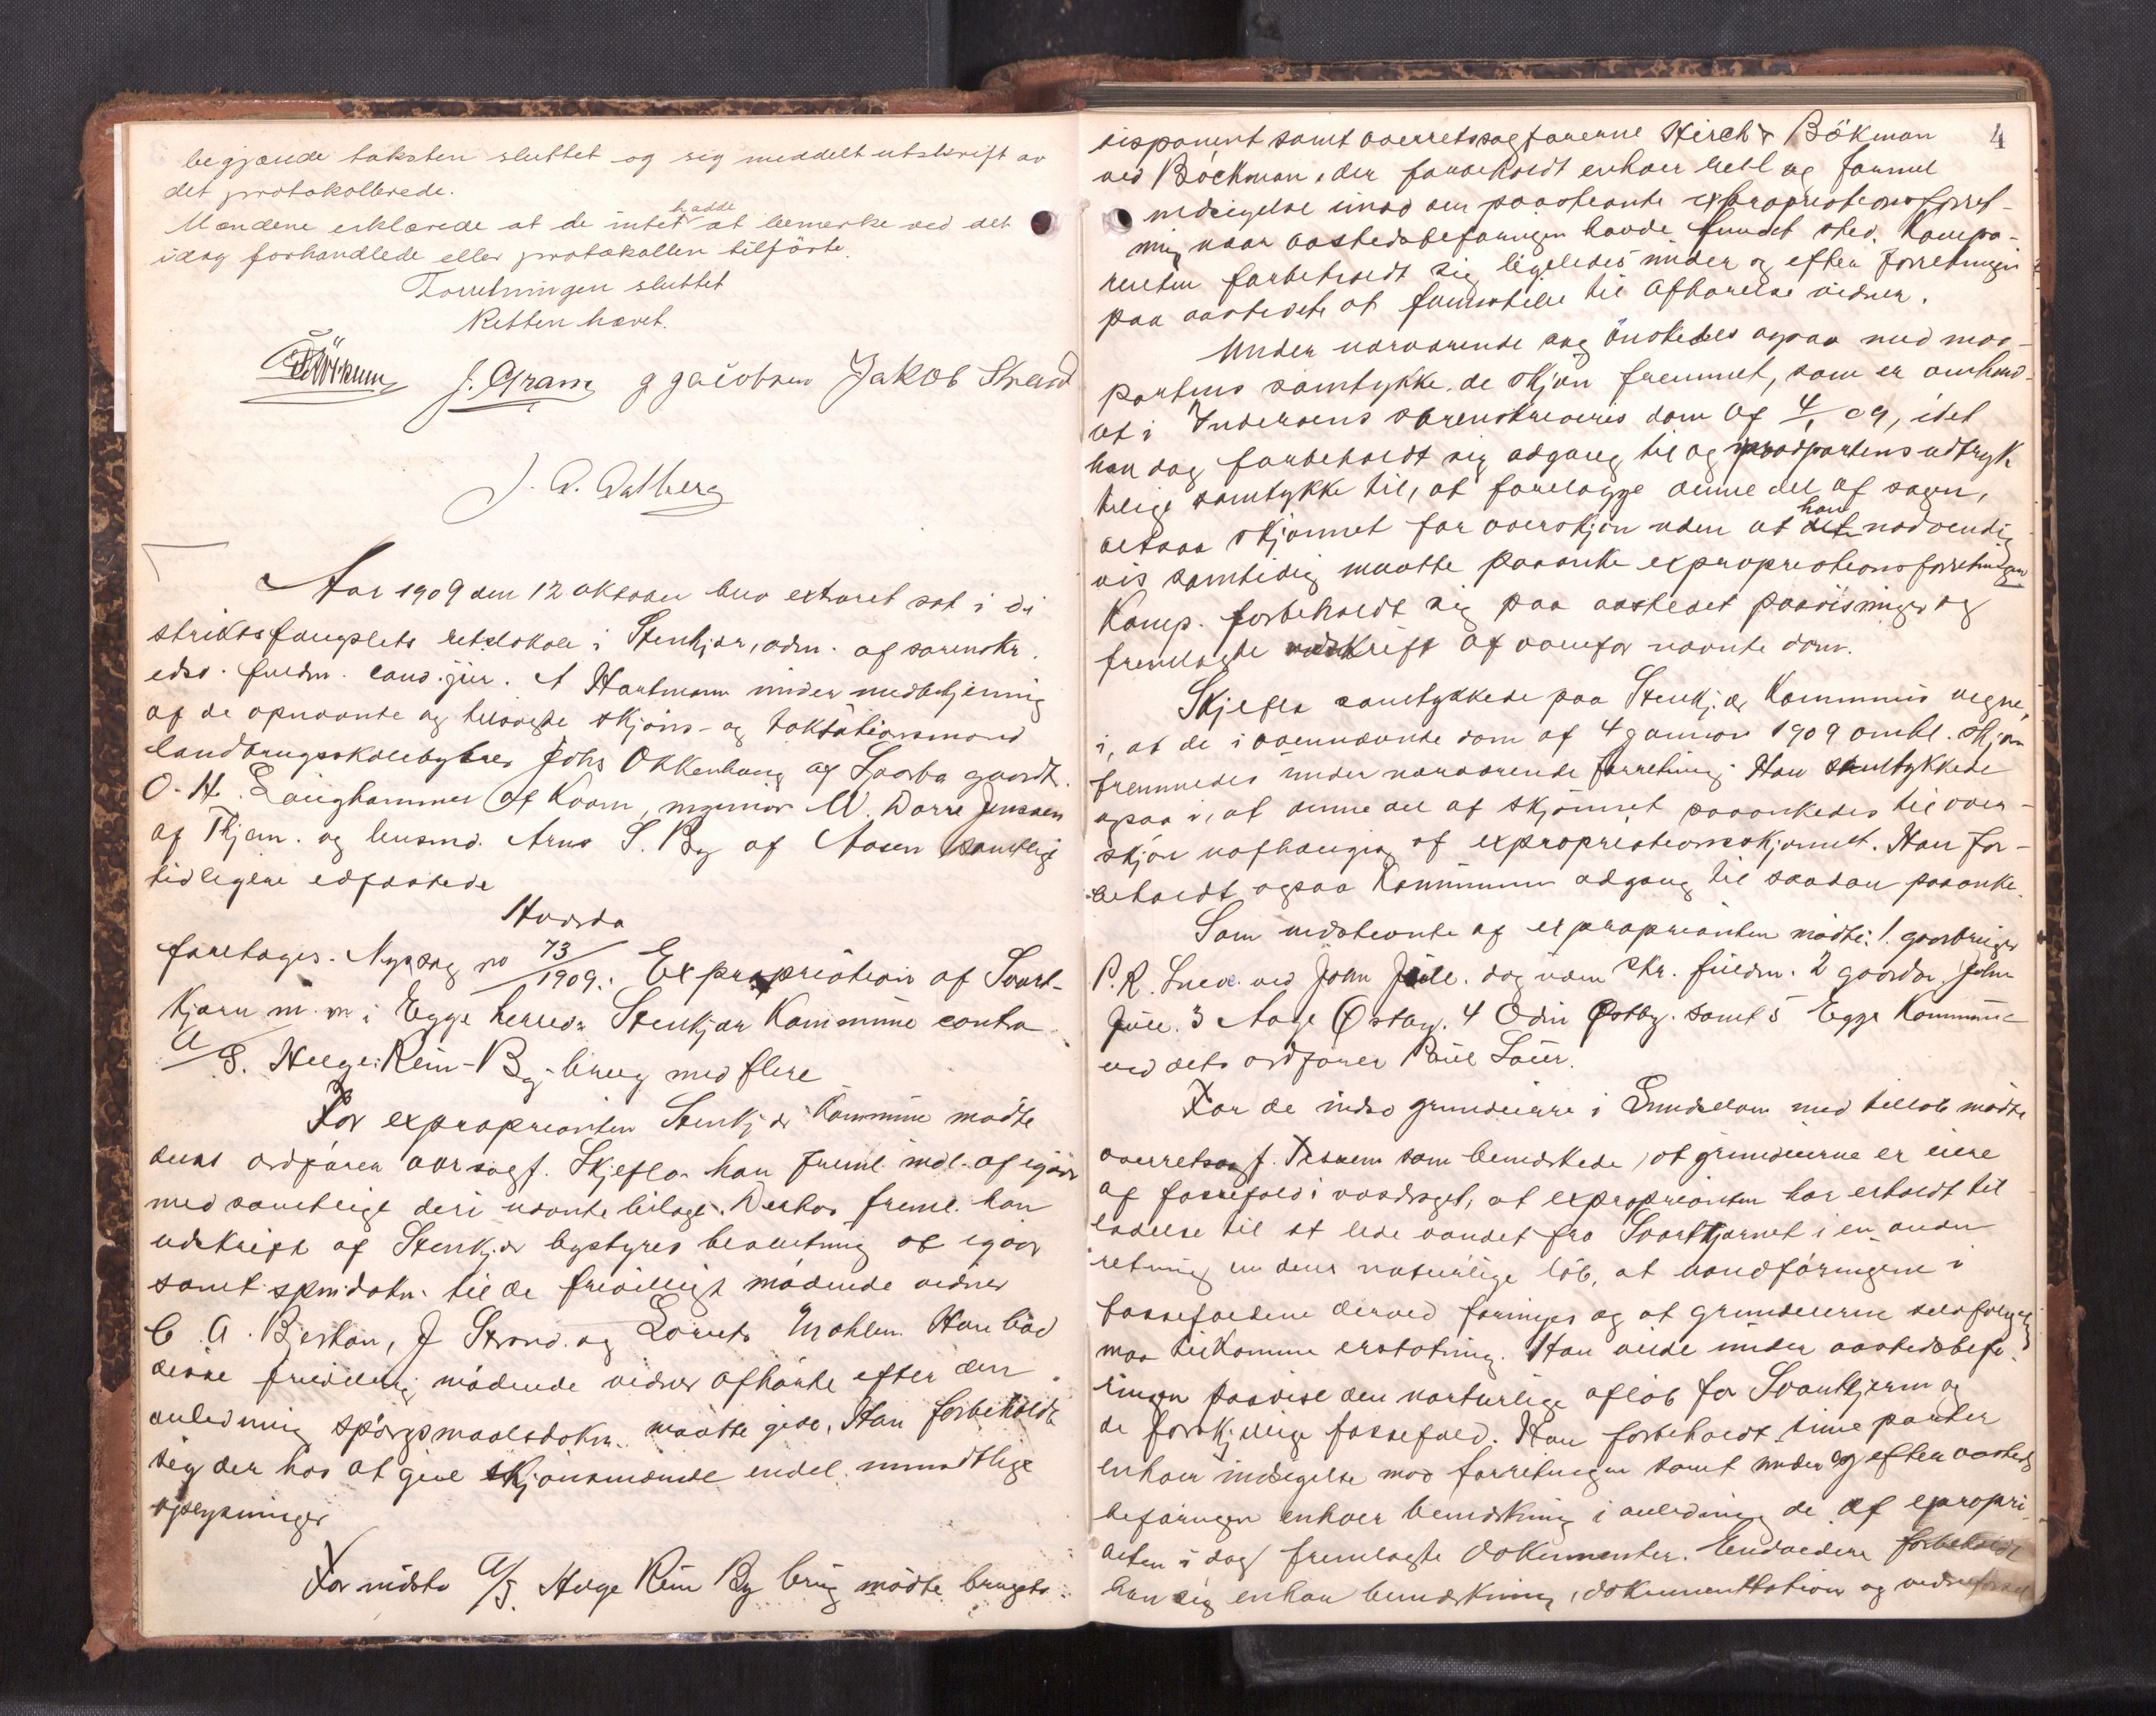 begjærede taksten sluttet og sig meddelt utskrift av
det protokollerede.
Mændene erklærede at de intet hadde at bemerke ved det
idag forhandlede eller protokollen tilförte.
Forretningen sluttet
Retten hævet.
J. Gram g jacobsen Jakob Strand
Aar 1909 den 12 oktober blev extraret sat i di
striktsfængslets retslokale i Stenkjær, adm. af sorenskr.
edsv. fuldm. cand. jur. A Hartmann under medbetjening
af de opnævnte og tilsagte skjöns- og takstationsmænd
landbrugsskolebestyrer Johs Okkenhaug af
O. H. Langhammer af Kvam, ingeniör W. Dorre Jenssen
af Thjem. og lensmd. Arns S. By af Aasen samtlige
tidligere edfæstede
Hvorda
foretages. Ny sag no 73/1909: Expropriation af Svart-
kjærn m. m i Egge herred: Stenkjær Kommune contra
A/S. Helge-Rein-By-brug med flere
For exproprianten Stenkjær Kommune mødte
dens ordförer oversagf. Skjeflo. han freml. indl. af igaar
med samtlige deri nævnte bilage. Derhos freml. han
udskrift af Stenkjær bystyres beslutning af igaar
samt spmdokm. til de frivilligt mödende vidner
C. A. Bjerkan, J Strand. og Lorents Mæhlen. Han bad
disse frivillig mödende vidner afhörte efter den
anledning spörgsmaalsdokm. maatte give. Han forbeholdt
sig der hos at give skjönsmændene endel mundtlige
oplysninger
For indste A/S. Helge Rein By brug mödte brugets
4
disponent samt overretssagförerne Hirch & Bökman
ved Böckman, der forbeholdt enhver reel og formel
indsigelse imod den paastevnte expropriationsforret-
ning naar aastedsbefaringen havde fundet sted. Kompa-
renten forbeholdt sig ligeledes under og efter forretningen
paa aastedet at fremstille til afhörelse vidner.
Under nærværende sag önskedes ogsaa med mod-
partens samtykke de skjön fremmet, som er omhand-
let i Inderöens sorenskriveris dom af 4/1 09, idet
han dog forbeholdt sig adgang til og modpartens udtryk
kelige samtykke til, at forelægge denne del af sagen,
altsaa skjönnet for overskjön uden at han nödvendig
vis samtidig maatte paaanke expropriationsforretningen
Komp. forbeholdt sig paa aastedet paavisninger og
fremlagte udskrift af ovenfor nævnte dom.
Skjeflo samtykkede paa Stenkjær Kommunes vegne
i, at de i ovennævnte dom af 4 januar 1909 omhl. skjön
fremmedes under nærværende forretning. Han samtykkede
ogsaa i, at denne del af skjönnet paaankedes til over-
skjön uafhængig af expropriationsskjönnet. Han for-
beholdt ogsaa Kommunen adgang til saadan paaanke.
Som indstevnte af exproprianten mödte: 1. gaardbruger
P. R. ved John Juel. dog som skr. fuldm. 2 gaardbr. John
Juel. 3 Aage Östby. 4 Odin Østby. samt 5 Egge Kommune
ved dets ordförer Paul
For de indst grundeiere i med tillöb mödte
overretssagf. som bemærkede, at grundeierne er eiere
af fossefald i vasdraget, at exproprianten har erholdt til
ladelse til at lede vandet fra Svarttjernet i en anden
retning en dens naturlige löb, at vandföringen i
fossefaldene derved forringes og at grundeierne selvfölgelig
maa tilkomme erstatning. Han vilde under aastedsbefa-
ringen paavise den naturlige aflöb for Svarttjernet og
de forskjellige fossefald. Han forbeholdt sine parter
enhver indsigelse mod forretningen samt under og efter aasteds
befaringen enhver bemærkning i anledning de af expropri-
anten i dag fremlagte dokumenter. Endvidere forbeholdt
han sig enhver bemærkning, dokumentation og